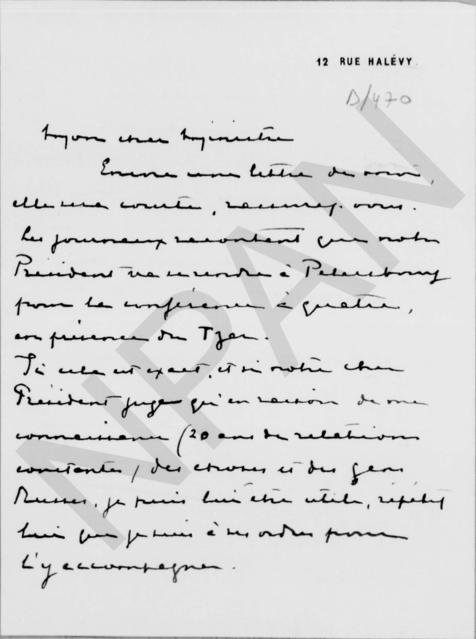 12 RUE HALÉVY
D/470
Mon cher Ministre
Encore une lettre de moi,
elle sera courte, rassurez-vous.
Les journaux racontent que notre
Président va se rendre à Petersbourg
pour la conférence à quatre,
en présence du Tzar.
Si cela est exact, et si notre cher
Président juge qu'en raison de ma
connaissance (20 ans de relations
constantes) des choses et des gens
Russes, je puis lui être utile, répétez
lui que je suis à ses ordres pour
l'y accompagner.
NPAN